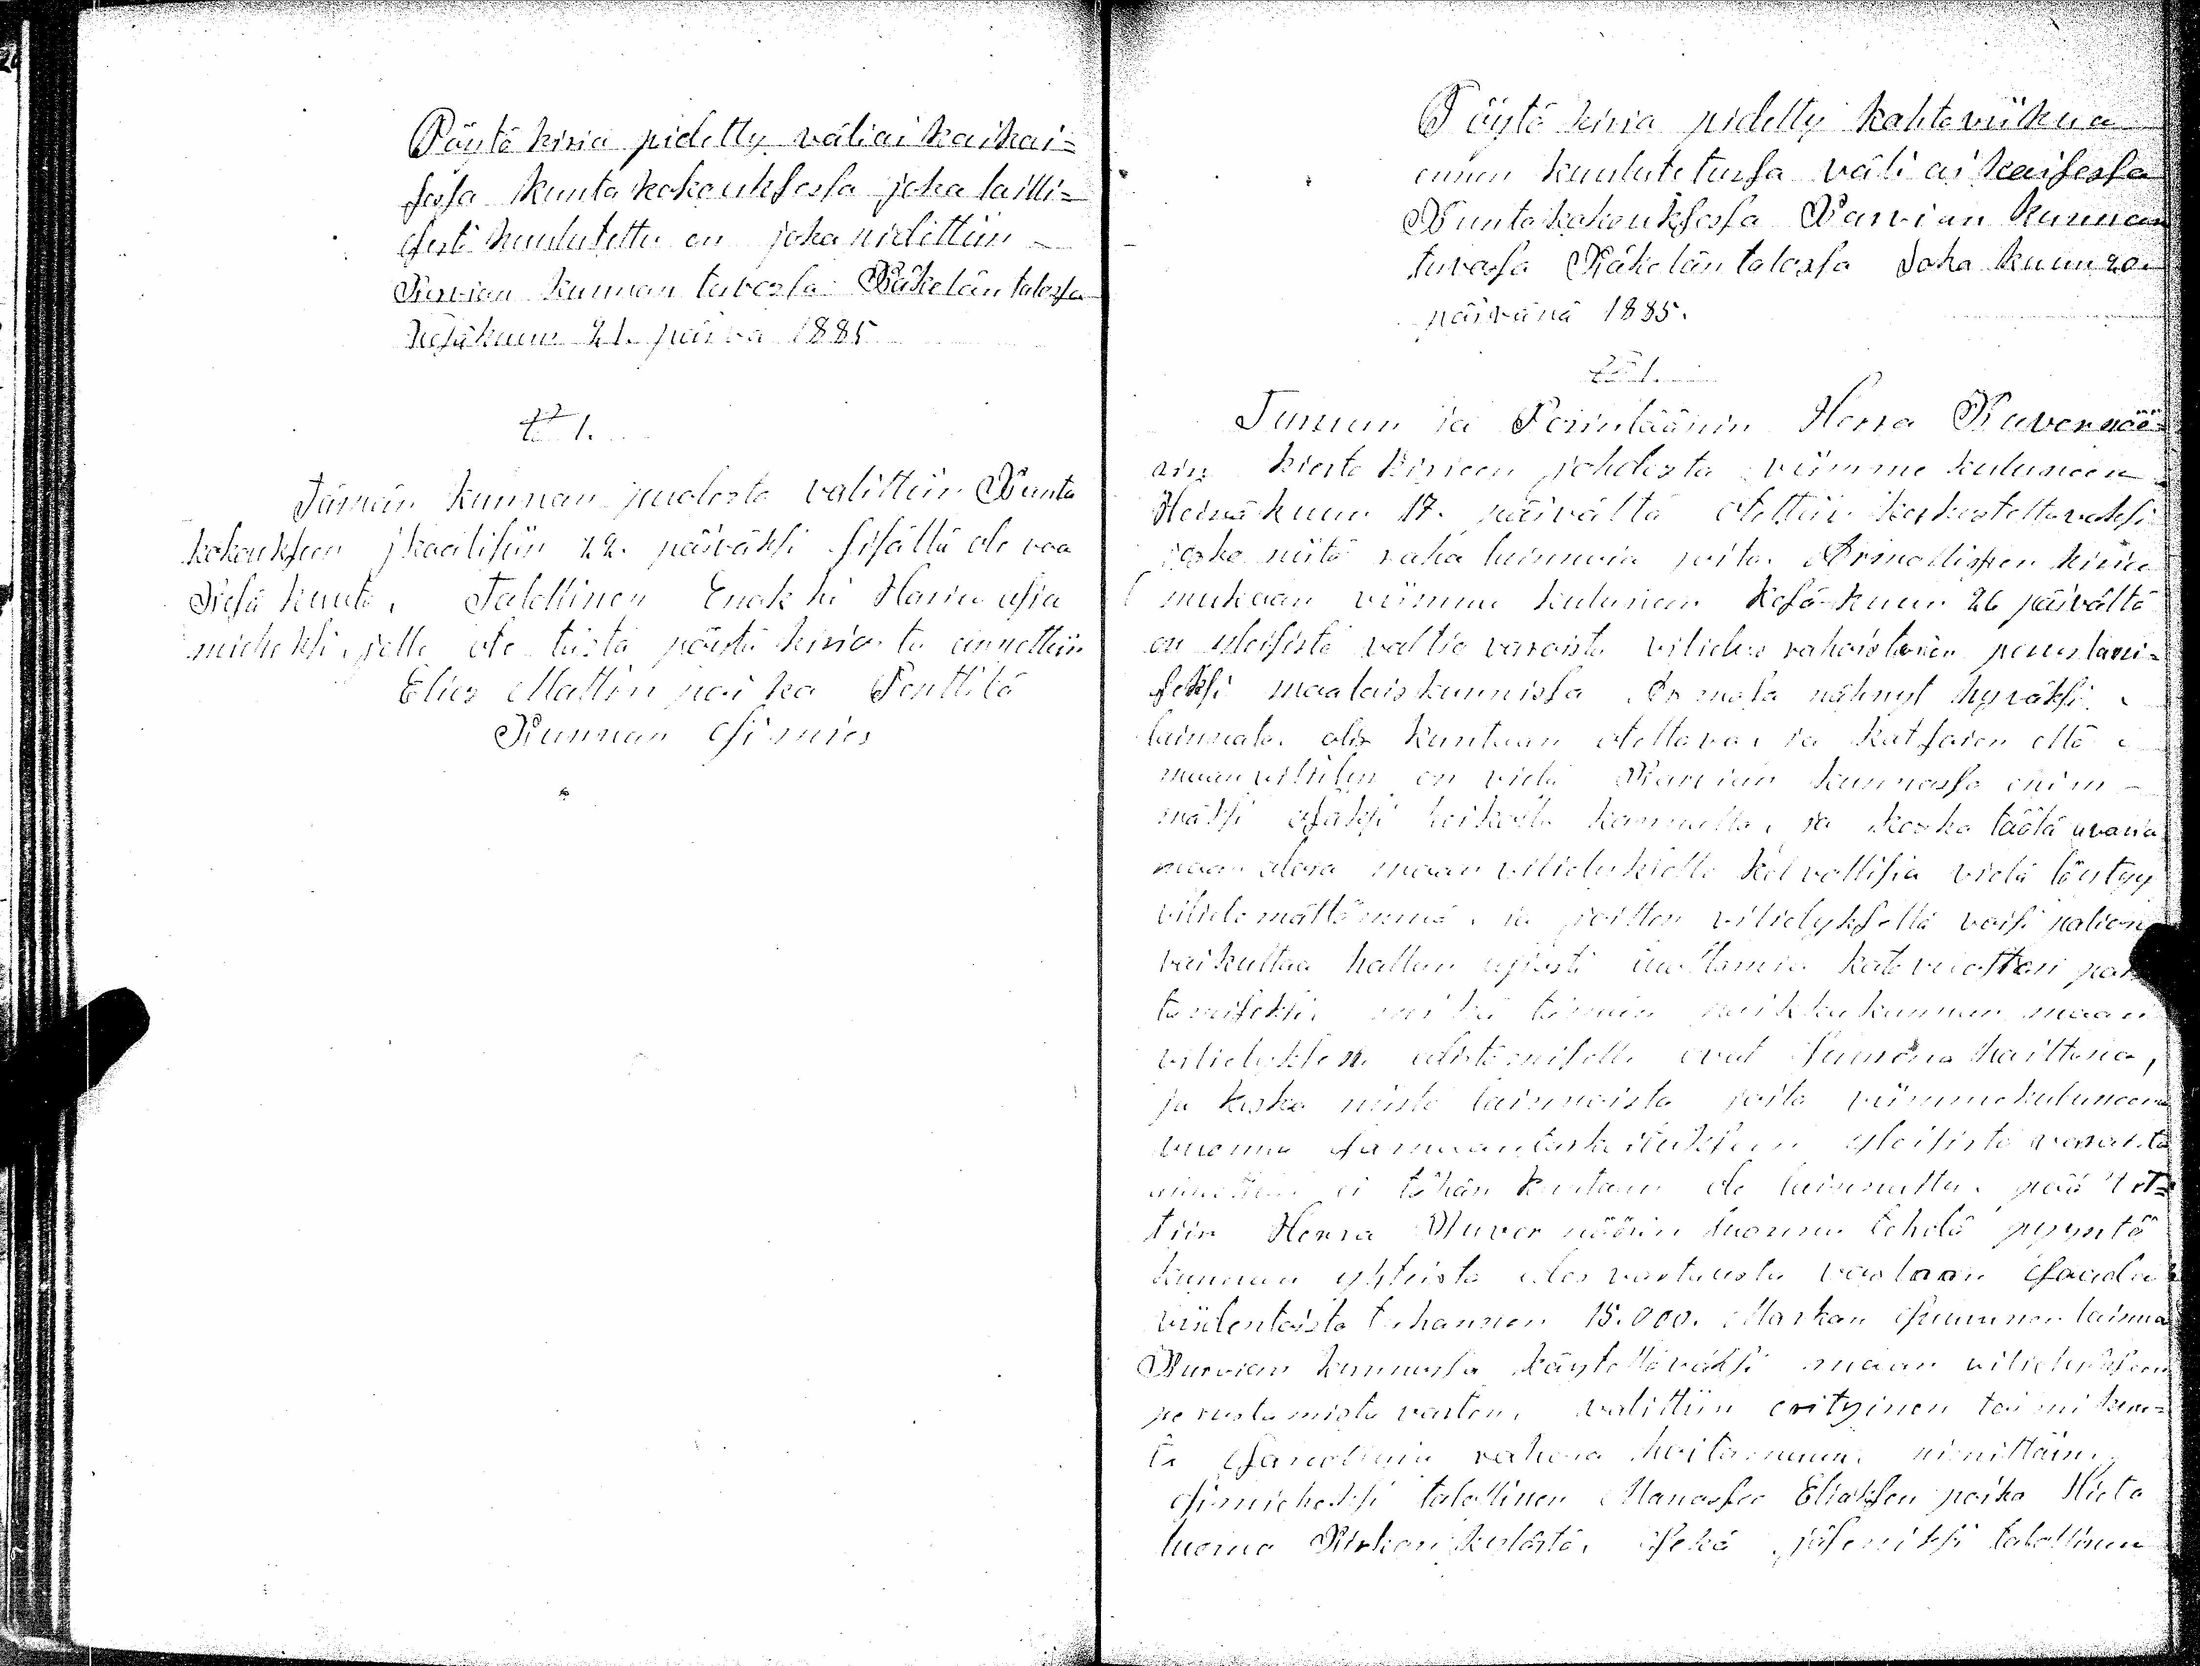 Pöytä kiria pidetty väliaikaikai=
sessa Kunta kokouksessa joka lailli=
sesti kuulutettu on joka pidettiin
Karvian kunnan tuvassa Käkelän talossa
Kesäkuun 21. päivä 1885
§ 1.
Tämän kunnan puolesta valittiin Kunta
kokouksen 22. päiväksi sisällä ole vaa
Kesä kuuta, Talollinen Enok ki Harin asia
mieheksi, jolle ote tästä pöytä kiriasta annettiin
Elias Mattin poi ka Penttilä
Kunnan Esimies
Pöytä kiria pidetty kahta viikua
ennen kuulutetussa väli aikaisessa
Kunta kokouksessa Karvian Kunnan
tuvassa Käkelän talossa Joka kuun 20.
päivänä 1885.
§ 1.
Turuun ja Porinläänin Herra Kuvernöö=
rin kierto kirieen johdosta viimme kuluneen
Heinäkuun 17. päivältä otettiin keskusteltavaksi
koska niitä raha lainnoia joita Armollissen kirien
mukaan viimme kuluneen Kesä-kuun 26 päivältä
on yleisistä valtio varoista vilielus rahaistoien perustami=
seksi maalaiskunnissa Armossa nähnyt hyväksi
lainnata, olis kuntaan otettava, ja katsoien että
maan vilielus on vielä Karvian kunnassa enim
mäksi osaksi heikolla kannalla, ja koska täälä avaria
maan aloia maan vilielykselle kelvollisia vielä löytyy
vilielemättöminä, ja joitten vilielyksellä voisi palion
vaikuttaa hallan upiasti tuottamia katovuotten
tamiseksi, mi kä tämän paikkakunnan maan
vilielyksen edistämiselle ovat suurena haittana,
ja koska niistä lainnoista joita viimmekuluneena
vuonna samaantarkoitukseen yleisistä varoista
annettiin ei tähän kuntaan ole lainnattu, päätet=
tiin Herra Kuver nöörin luonna tehdä pyyntö
kunnan yhteistä edes vastausta vastaan saada
viidentoista tuhannen 15.000. Markan suurunen lainna
Karvian kunnassa käytettäväksi maan vilielyksen
perustamista varten, valittiin erityinen toimi kun=
ta sanottuia rahoia hoitamaan, nimittäin
esimieheksi talollinen Manasse Eliaksen poika Hieta
luoma Kirkonkylästä, sekä jäseniksi talollinen